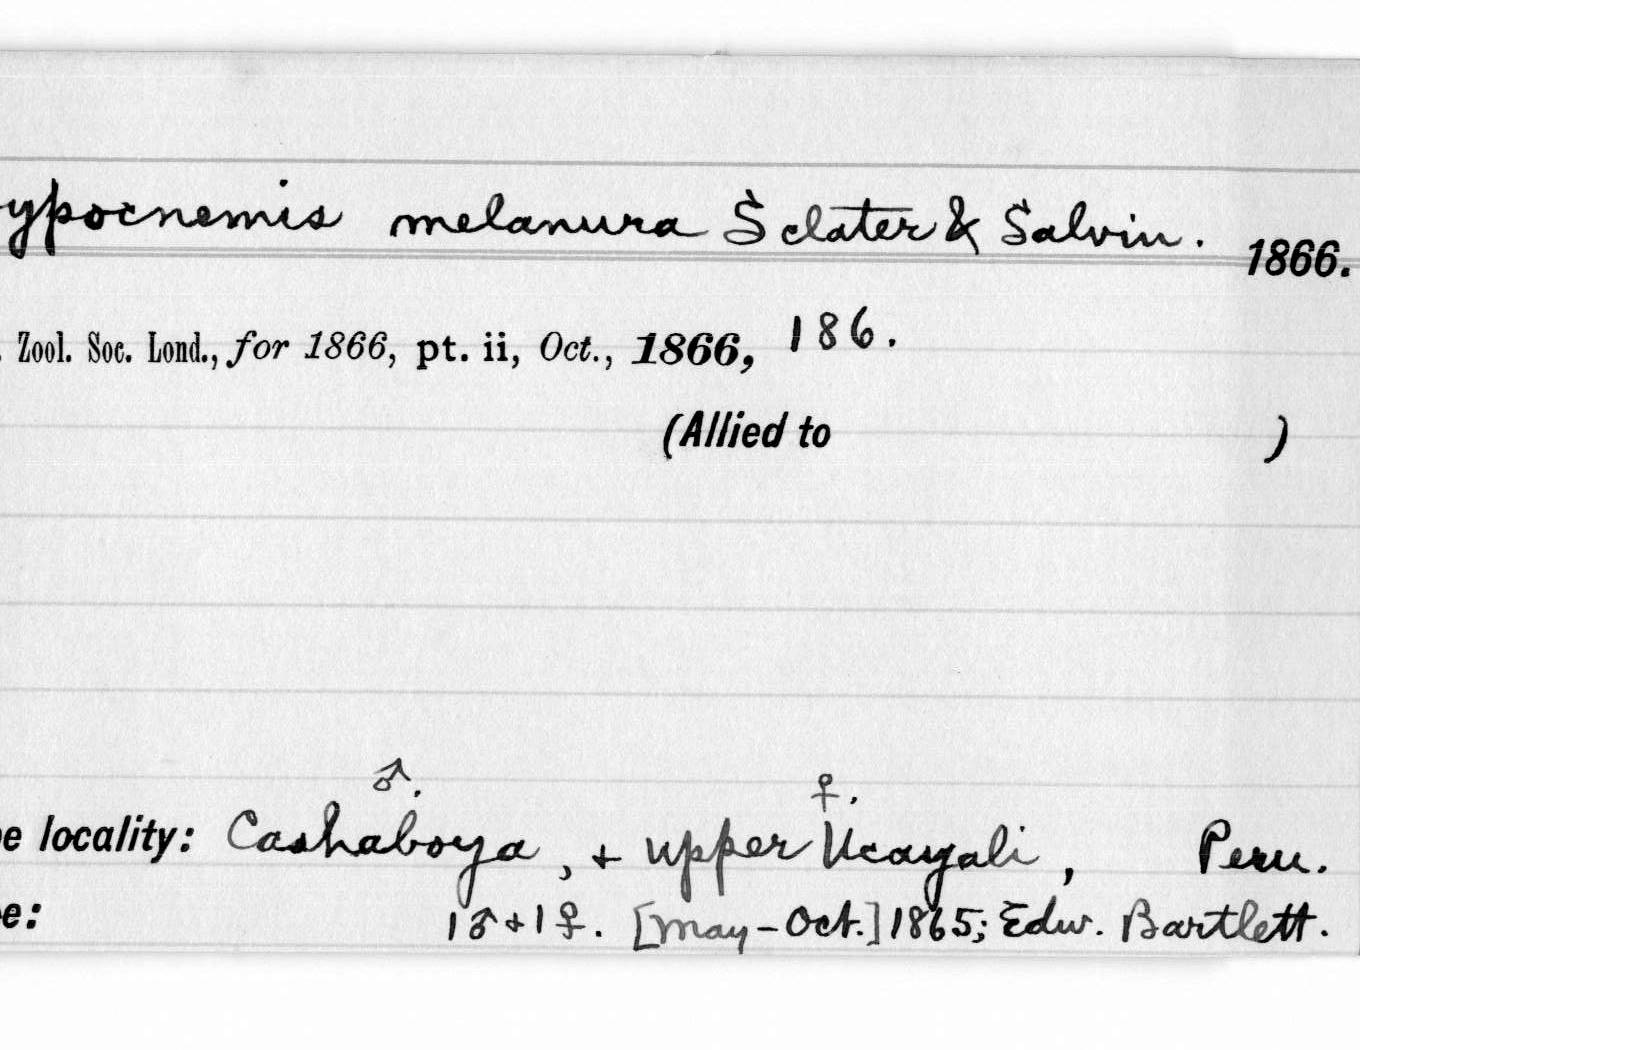 ypocnemis melanura Sclater & Salvin. 1866.
. Zool. Soc. Lond., for 1866, pt. ii, Oct., 1866, 186.
(Allied to )
♂. ♀.
e locality: Cashaboya, + upper Ucayali, Peru.
e: 1♂+1♀. [May-Oct.] 1865; Edw. Bartlett.